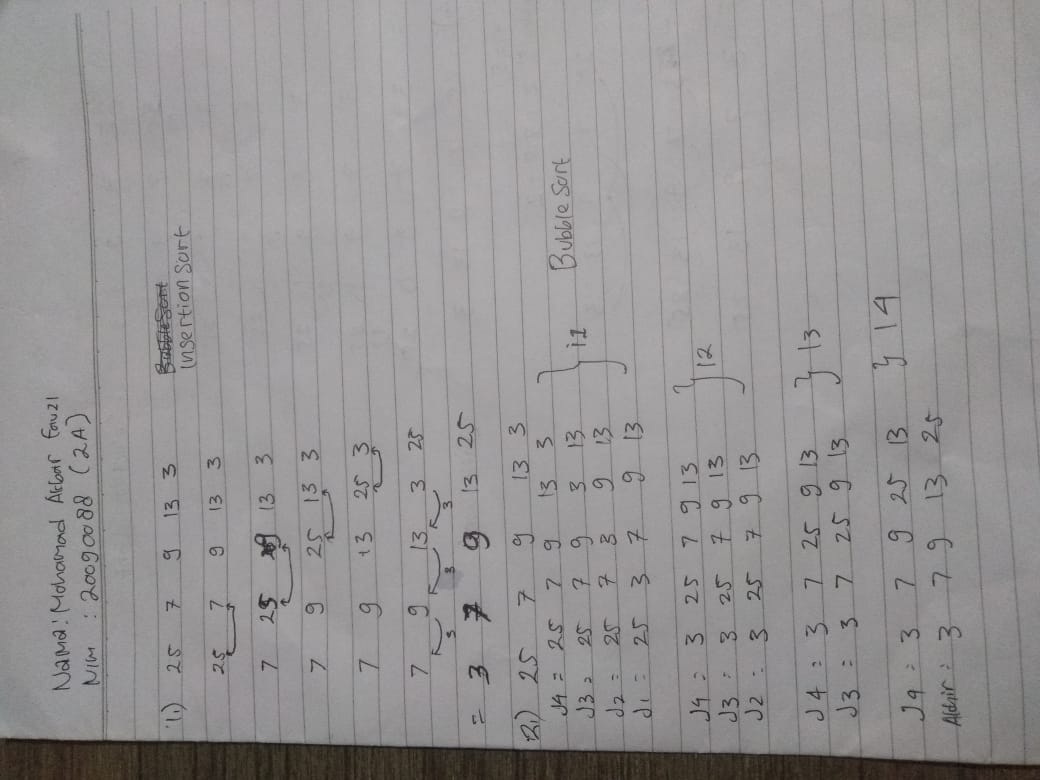 Nama: Mohamad Akbar Fauzi
NIM : 20090088 (2A)
1.) 25 7 9 13 3
Insertion Sort
25 7 9 13 3
7 25 9 13 3
7 9 25 13 3
7 9 13 25 3
7 9 13 3 25
3 3 3
= 3 7 9 13 25
2.) 25 7 9 13 3
J4 = 25 7 9 13 3
J3 = 25 7 9 3 13
J2 = 25 7 3 9 13
J1 = 25 3 7 9 13
i1
Bubble Sort
J4 = 3 25 7 9 13
J3 = 3 25 7 9 13
J2 = 3 25 7 9 13
i2
J4 = 3 7 25 9 13
J3 = 3 7 25 9 13
i3
J4 = 3 7 9 25 13
i4
Akhir = 3 7 9 13 25